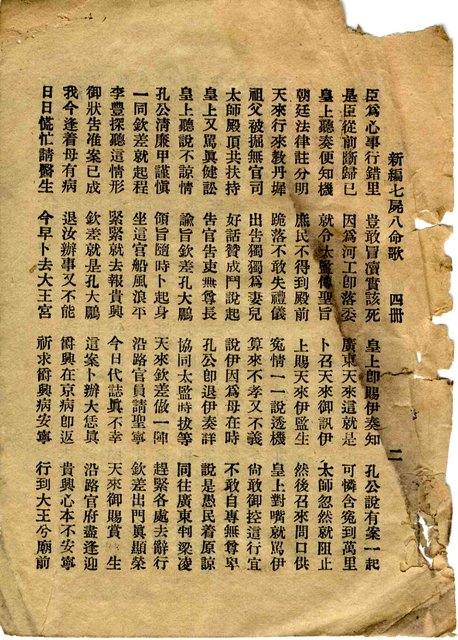 新編七屍八命歌　四冊　二
臣爲心事行錯里　豈敢冒瀆實該死　皇上卽賜伊奏知　孔公說有案一起
是臣從前斷歸已　因爲河工卽落委　廣東天來這就是　可憐含寃到萬里
皇上聽奏便知機　就令太監傳聖旨　卜召天來御訊伊　太師忽然就阻止
朝廷法律註分明　庶民不得到殿前　上賜天來伊監生　然後召來問口供
天來行來敎丹墀　跪落不敢失禮儀　寃情一一說透機　皇上對嘴就罵伊
祖父被掘無官司　出告獨獨爲妻兒　算來不孝又不義　尙敢御控這行宜
太師殿頂共扶持　好話贊成鬥說起　說伊因爲母在時　不敢自專無尊卑
皇上又罵眞健訟　告官告吏無尊長　孔公卽退伊奏詳　說是愚民着原諒
皇上聽說不諒情　諭旨欽差孔大鵬　協同太監時拔等　同往廣東判梁凌
孔公淸廉甲謹愼　領旨隨時卜起身　天來欽差做一陣　趕緊各處去辭行
一同欽差就起程　坐這官船風浪平　沿路官員請聖寧　欽差出門眞顯榮
李豐探聽這情形　緊緊就去報貴興　今日代誌眞不幸　天來御賜賞　生
御狀告准案已成　欽差就是孔大鵬　這案卜辦大恁眞　沿路官府盡逢迎
我今逢着母有病　退汝辦事又不能　爵興在京病卽返　貴興心本不安寧
日日慌忙請醫生　今早卜去大王宮　祈求爵興病安寧　行到大王兮廟前